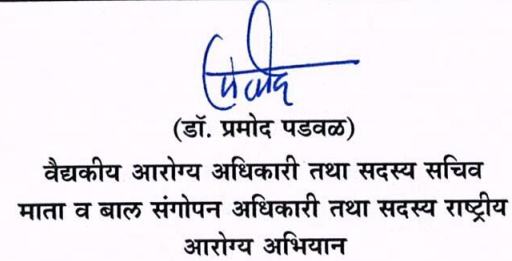 (डॉ. प्रमोद पडवळ)
वैद्यकीय आरोग्य अधिकारी तथा सदस्य सचिव
माता व बाल संगोपन अधिकारी तथा सदस्य राष्ट्रीय
आरोग्य अभियान